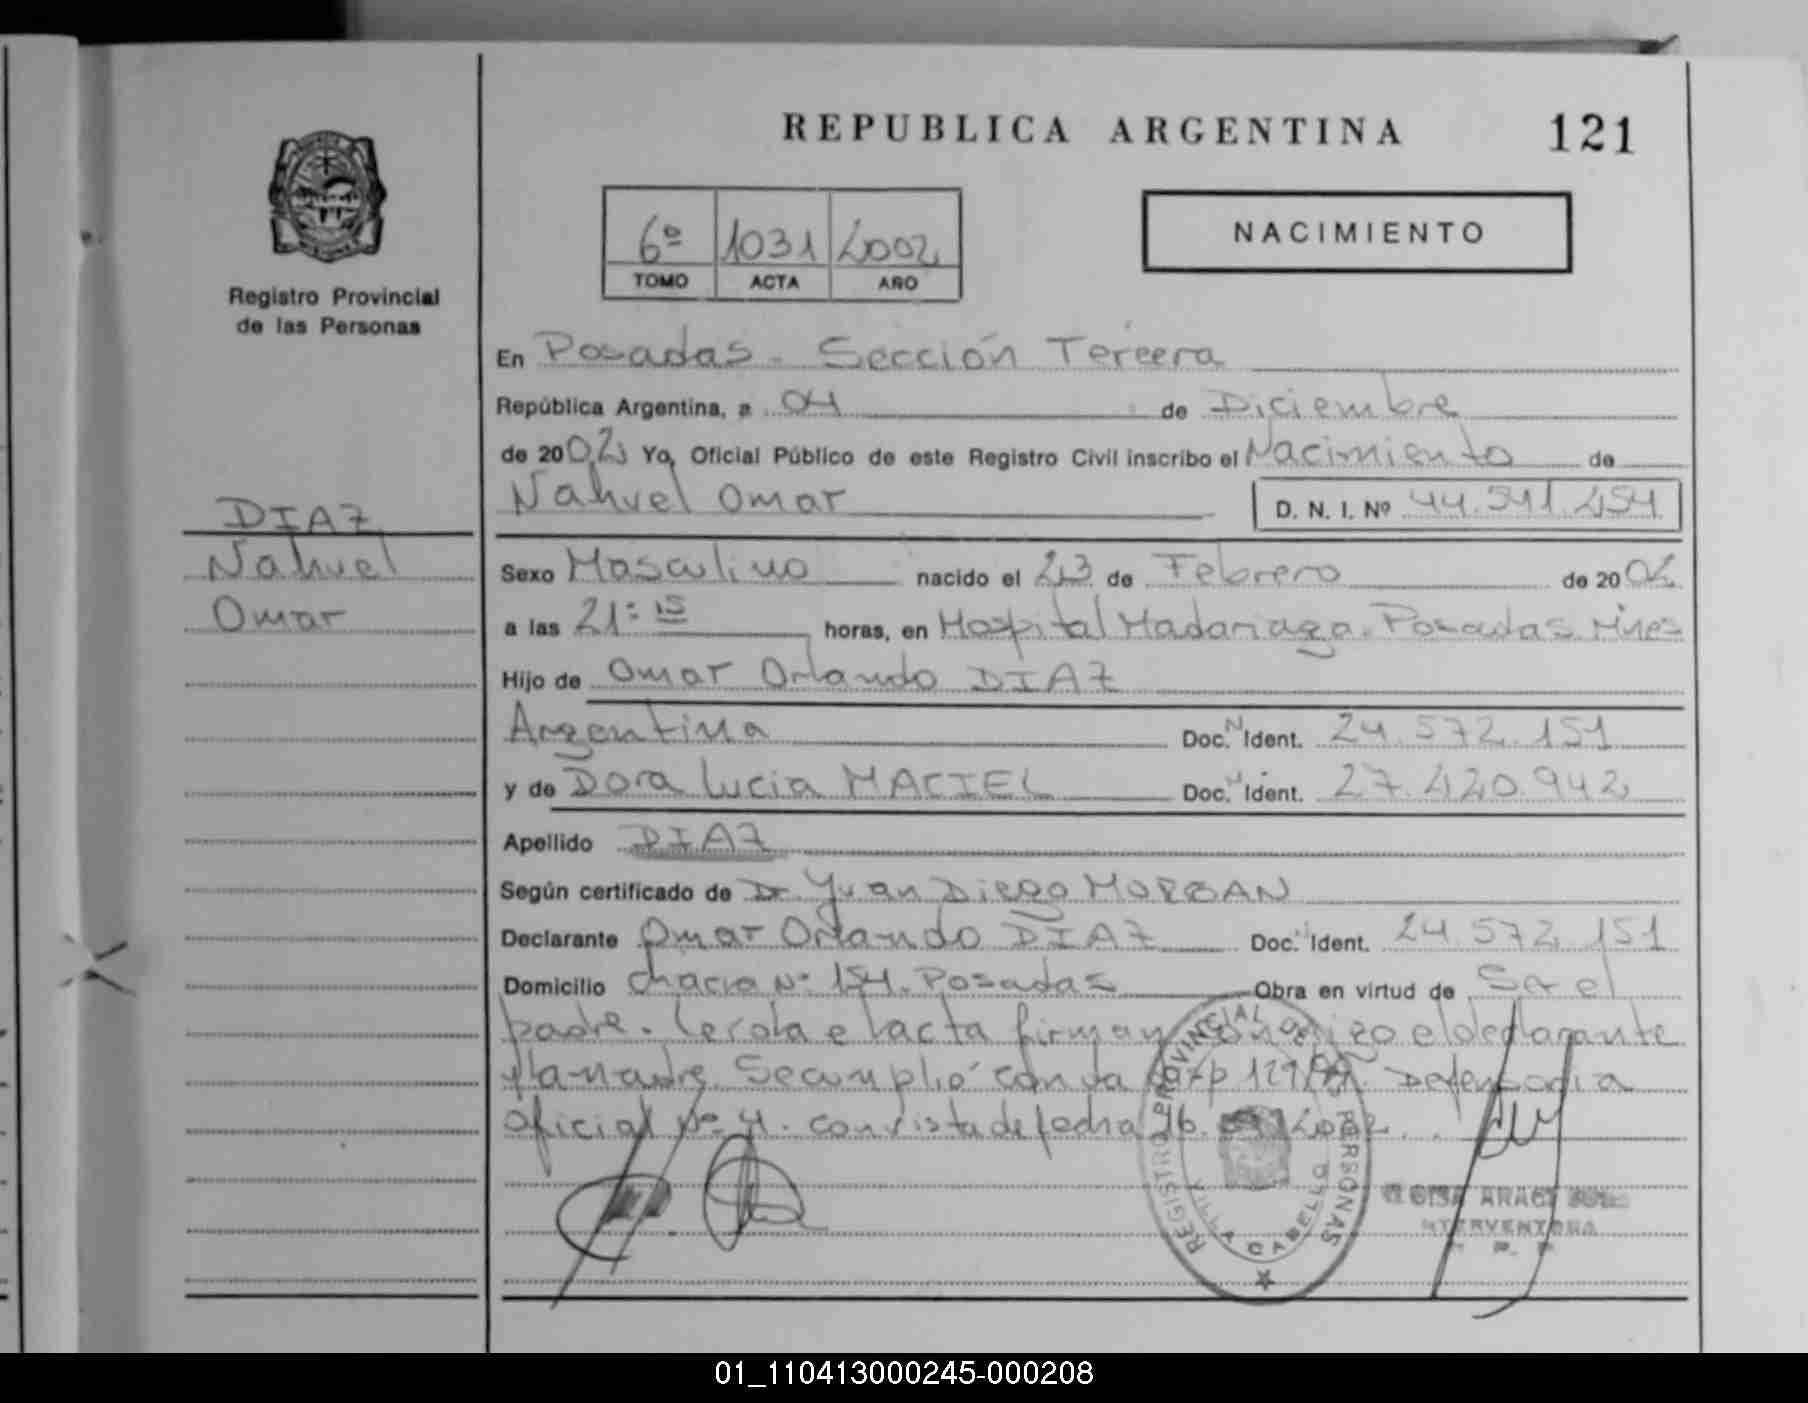 REPUBLICA ARGENTINA 121
6º 1031 2002
TOMO ACTA AÑO
NACIMIENTO
Registro Provincial
de las Personas
En Posadas - Sección Tercera
República Argentina, a 04 de Diciembre
de 2002 Yo, Oficial Público de este Registro Civil inscribo el Nacimiento de
Nahuel Omar D. N. I. Nº 44.541.454
DIAZ
Nahuel
Omar
Sexo Masculino nacido el 23 de Febrero de 2002
a las 21:15 horas, en Hospital Madariaga. Posadas. Mnes
Hijo de Omar Orlando DIAZ
Argentina Doc. N Ident. 24.572.151
y de Dora Lucia MACIEL Doc. Ident. 27.420.942
Apellido DIAZ
Según certificado de Dr. Yvan Diego MORBAN
Declarante Omar Orlando DIAZ Doc. Ident. 24.572.151
Domicilio Chacra Nº 154. Posadas Obra en virtud de Ser el
padre. acta firman el declarante
y la madre. Se cumplió con la Defensoria
oficial Nº 4. con vista de fecha 16. 2002
REGISTRO PROVINCIAL DE LAS PERSONAS
VILLA CABELLO
INTERVENTORA
01_110413000245-000208